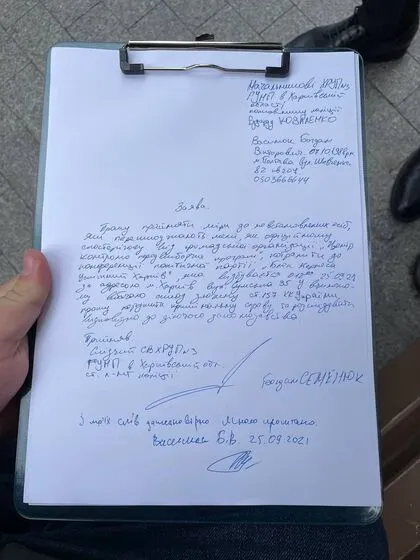 Начальникові ХРУП №3
ГУНП в Харківській
області
полковнику поліції
Едуарду КОВАЛЕНКО
Васишак Богдан
Вікторович 07.10.19
м. Полтава вул. Шевченка
82 кв 204
0503666644
Заява.
Прошу прийняти міри до невстановлених осіб,
які перешкоджають мені, як офіційному
спостерігачу від громадської організації "Центр
контролю передвиборчих програм", потрапити до
конференції політичної партії "Блок Кернеса
успішний Харків" яка відбувається 25.09.21
за адресою м. Харків вул. Сумська 35 у
вбачаю склад злочину ст. 157 УК України
прошу порушити кримінальну справу та розслідувати
відповідно до діючого законодавства
Прийняв
Слідчий СВ ХРУП №3
ГУНП в Харківській обл
ст. л-нт поліції
Богдан СЕМЕНЮК
З моїх слів достовірно Мною прочитано.
Б.В. 25.09.2021